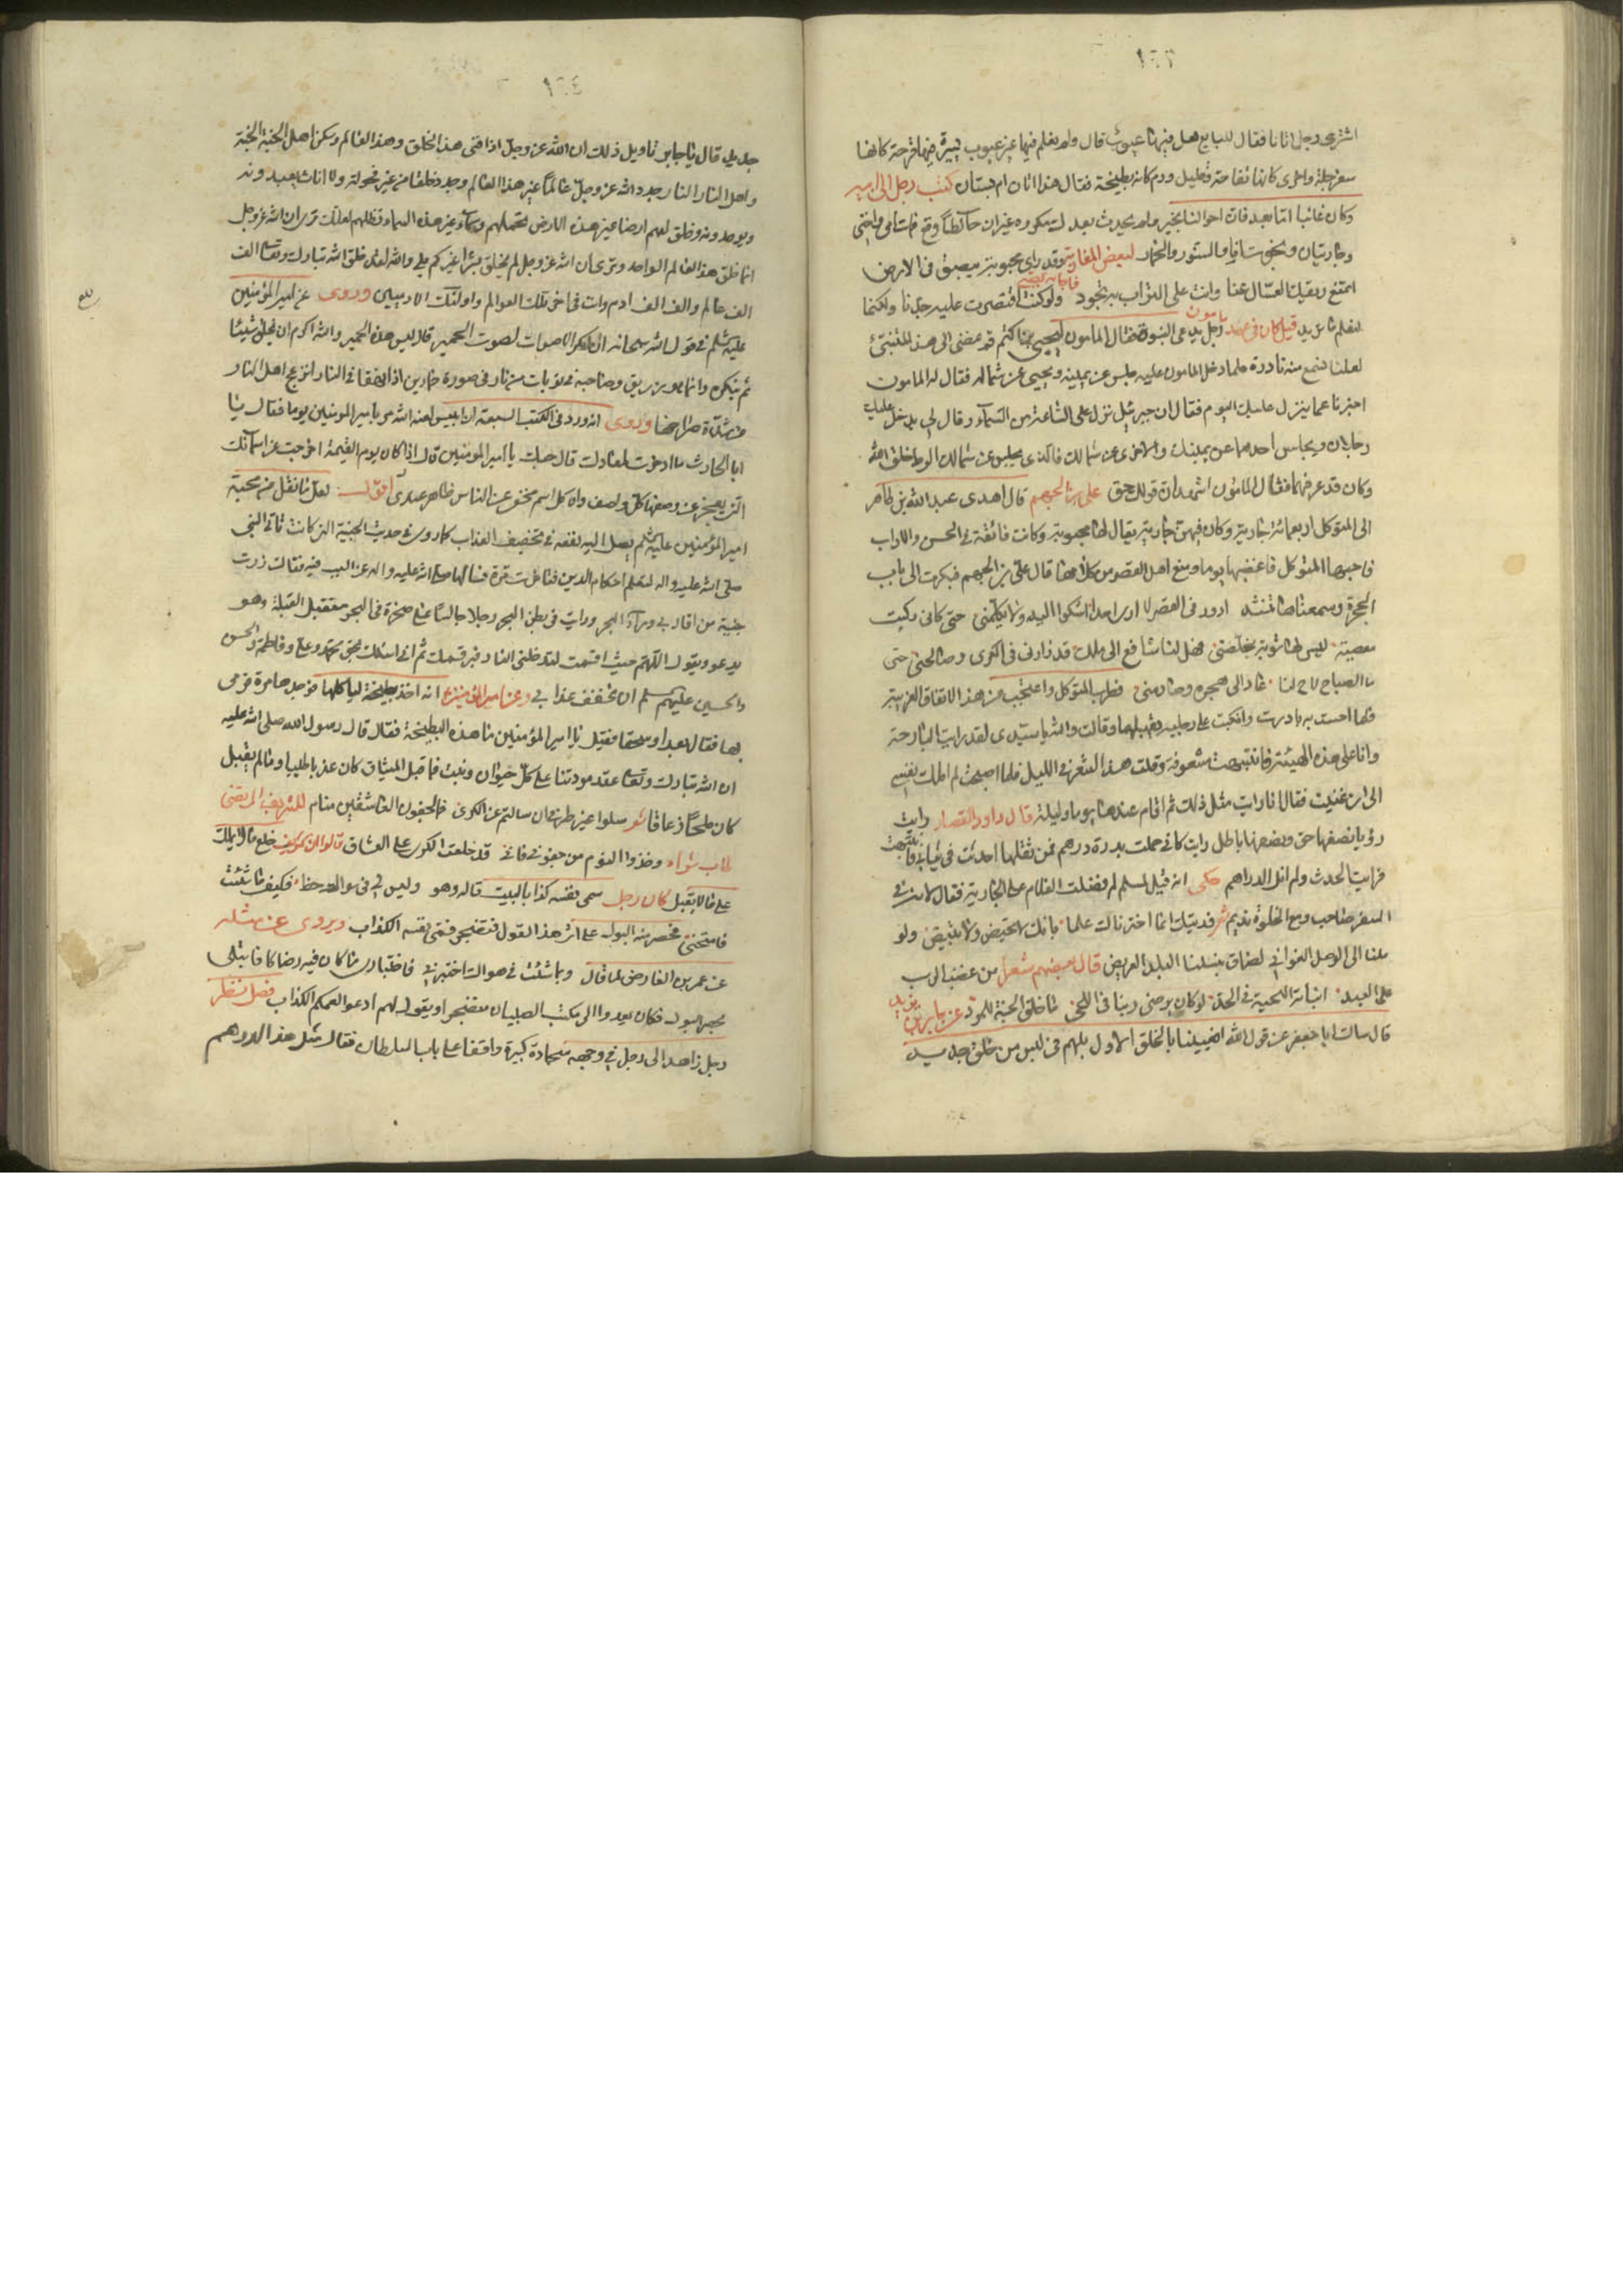 ١٦٣
اشترى رجل اتانا فقال للبايع هل فيها عيوب قال ولم يعلم فيها غير عيوب يسيرة منها قرحة كانها
سفرجلة واخرى كانها تفاحة ودم كانه بطيخة فقال هذا اتان ام بستان كتب رجل الى امير
وكان غائبا اما بعد فان احوالنا بخير ولم يحدث بعدك مكروه غير ان حائطا وقع فمات امي واختي
وجاريتان ونجوت انا والسنور والحمار لبعض المغاربة وقد راى محبوبته يبصق في الارض
امتنع ريقك العسال عنا وانت على التراب به تجود فاجابه بعضهم ولو كنت اقتصرت عليه جدنا ولكنا
نعلم من يريد قيل كان في عهد مامون رجل يدعى النبوة فقال المامون ليحيى بن اكثم قم نمضي الى هذا المتنبئ
لعلنا نسمع منه نادرة فلما دخل المامون عليه جلس عن يمينه ويحيى عن شماله فقال له المامون
اخبرنا عما ينزل عليك اليوم فقال ان جبرئيل نزل على الساعة من السماء وقال لي يدخل عليك
رجلان ويجلس احدهما عن يمينك والاخرى عن شمالك فالذي يجلس عن شمالك الوط خلق الله
وكان قد عرفهما فقال المامون اشهد ان قولك حق على بن الجهم قال اهدى عبد الله بن طاهر
الى المتوكل اربعمائة جارية وكان فيهن جارية يقال لها محبوبة وكانت فائقة في الحسن والاداب
فاحبها المتوكل فاغضبها يوما ومنع اهل القصر من كلامها قال على بن الجهم فبكرت الى باب
الحجرة وسمعناها تنشد ادور في القصر لا ارى احدا اشكوا اليه ولا يكلمني حتى كاني ركبت
معصية ليس لها توبة تخلصني فهل لنا شافع الى ملك قد زارني في الكرى وصالحني حتى
ما الصباح لاح لنا عاد الى هجره وصارمني فطرب المتوكل واعجب من هذا الاتفاق الغريب
فلما احست به بادرت وانكبت على رجليه تقبلهما وقالت والله يا سيدي لقد رايت البارحة
وانا على هذه الهيئة فانتبهت مشعوفة وقلت هذا الشعر في الليل فلما اصبحت لم املك نفسي
الى ان غنيت فقال انا رايت مثل ذلك ثم اقام عندها يوما وليلة قال داود القصار رايت
رؤيا نصفها حق ونصفها باطل رايت كاني حملت بدرة درهم فمن ثقلها احدثت في ثيابي فانتبهت
فرايت الحدث ولم انل الدراهم حكى انه قيل لمسلم لم فضلت الغلام على الجارية فقال لانه في
السفر صاحب ومع الخلوة نديم شعر فديتك انما اخترناك علما بانك لا تحيض ولا تبيض ولو
ملنا الى الوصل الغواني لضاق بنسلنا البلد العريض قال بعضهم شعرا من غضب الرب
على العبد انباته اللحية في الخد لو كان يرضى ربنا في اللحى ما خلق الجنة للمرد عن جابر بن يزيد
قال سالت ابا جعفر عن قول الله افعيينا بالخلق الاول بل هم في لبس من خلق جديد
١٦٤
جديد قال يا جابر تاويل ذلك ان الله عز وجل اذا افنى هذا الخلق وهذا العالم وسكن اهل الجنة الجنة
واهل النار النار جدد الله عز وجل عالما غير هذا العالم وجدد خلقا من غير فحولة ولا اناث يعبدونه
ويوحدونه وخلق لهم ارضا غير هذه الارض تحملهم وسماء غير هذه السماء تظلهم لعلك ترى ان الله عز وجل
انما خلق هذا العالم الواحد وترى ان الله عز وجل لم يخلق بشرا غيركم بلى والله لقد خلق الله تبارك وتعالى الف
الف عالم والف الف ادم وانت في اخر تلك العوالم واولئك الادميين وروى عن امير المؤمنين
عليه سلم في قول الله سبحانه ان انكر الاصوات لصوت الحمير قال ليس هذه الحمير والله اكرم ان يخلق شيئا
ثم ينكره وانما هو زريق وصاحبه في تابوت من نار في صورة حمارين اذا شهقا في النار انزعج اهل النار
من شدة صراخهما وروى انه ورد في الكتب السبعة ان ابليس لعنه الله مر بامير المومنين يوما فقال يا
ابا الحارث ما ادخرت لمعادك قال حبك يا امير المومنين قال اذا كان يوم القيمة اخرجت من اسمائك
التي يعجز عن وصفها كل واصف واه كل اسم مخفي عن الناس ظاهر عندي اقول لعل ما نقل من محبة
امير المؤمنين عليه سلم يصل اليه نفعه في تخفيف العذاب كما روى في حديث الجنية التي كانت تاتي النبي
صلى الله عليه واله لتعلم احكام الدين فتاخرت مرة فسالها صلى الله عليه واله عن السبب فيه فقالت زرت
جنية من اقاربي وراء البحر ورايت في بطن البحر رجلا جالسا على صخرة في البحر مستقبل القبلة وهو
يدعو ويقول اللهم حيث اقسمت لتدخلني النار فبر قسمك ثم اني اسئلك بحق محمد وعلي وفاطمة والحسن
والحسين عليهم سلم ان تخفف عذابي وعن امير المؤمنين انه اخذ بطيخة لياكلها فوجدها مرة فرمى
بها فقال بعدا وسحقا فقيل يا امير المؤمنين ما هذه البطيخة فقال قال رسول الله صلى الله عليه
ان الله تبارك وتعالى عقد مودتنا على كل حيوان ونبت فما قبل الميثاق كان عذبا طيبا وما لم يقبل
كان ملحا زعاقا شعر سلوا غير طرفي ان سالتم عن الكرى فما لجفون العاشقين منام للشريف المرتضى
طاب ثراه وخذوا النوم من جفوني فاني قد خلعت الكرى على العشاق قالوا ان كريم خلع ما لا يملك
على ما لا يقبل كان رجل سمى نفسه كذا بالبيت قاله وهو وليس لي في سواك حظ فكيف ما شئت
فامتحني فحصر منه البول على اثر هذا القول فتضجر فسمى نفسه الكذاب ويروى عن مثله
عن عمر بن الفارض لما قال وبما شئت في هواك اختبرني فاختياري ما كان فيه رضاكا فابتلى
بحصر البول فكان يعدوا الى مكتب الصبيان متضجرا ويقول لهم ادعوا لعمكم الكذاب فصل نظر
رجل زاهد الى رجل في وجهه سجادة كبيرة واقفا على باب السلطان فقال مثل هذا الدرهم